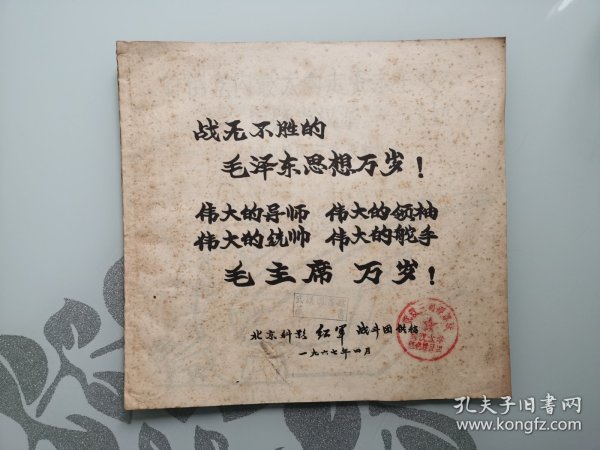 战无不胜的
毛泽东思想万岁！
伟大的导师 伟大的领袖
伟大的统帅 伟大的舵手
毛主席 万岁！
北京科影 红军 战斗团供稿
一九六七年四月
孔夫子旧书网
www.kongfz.com